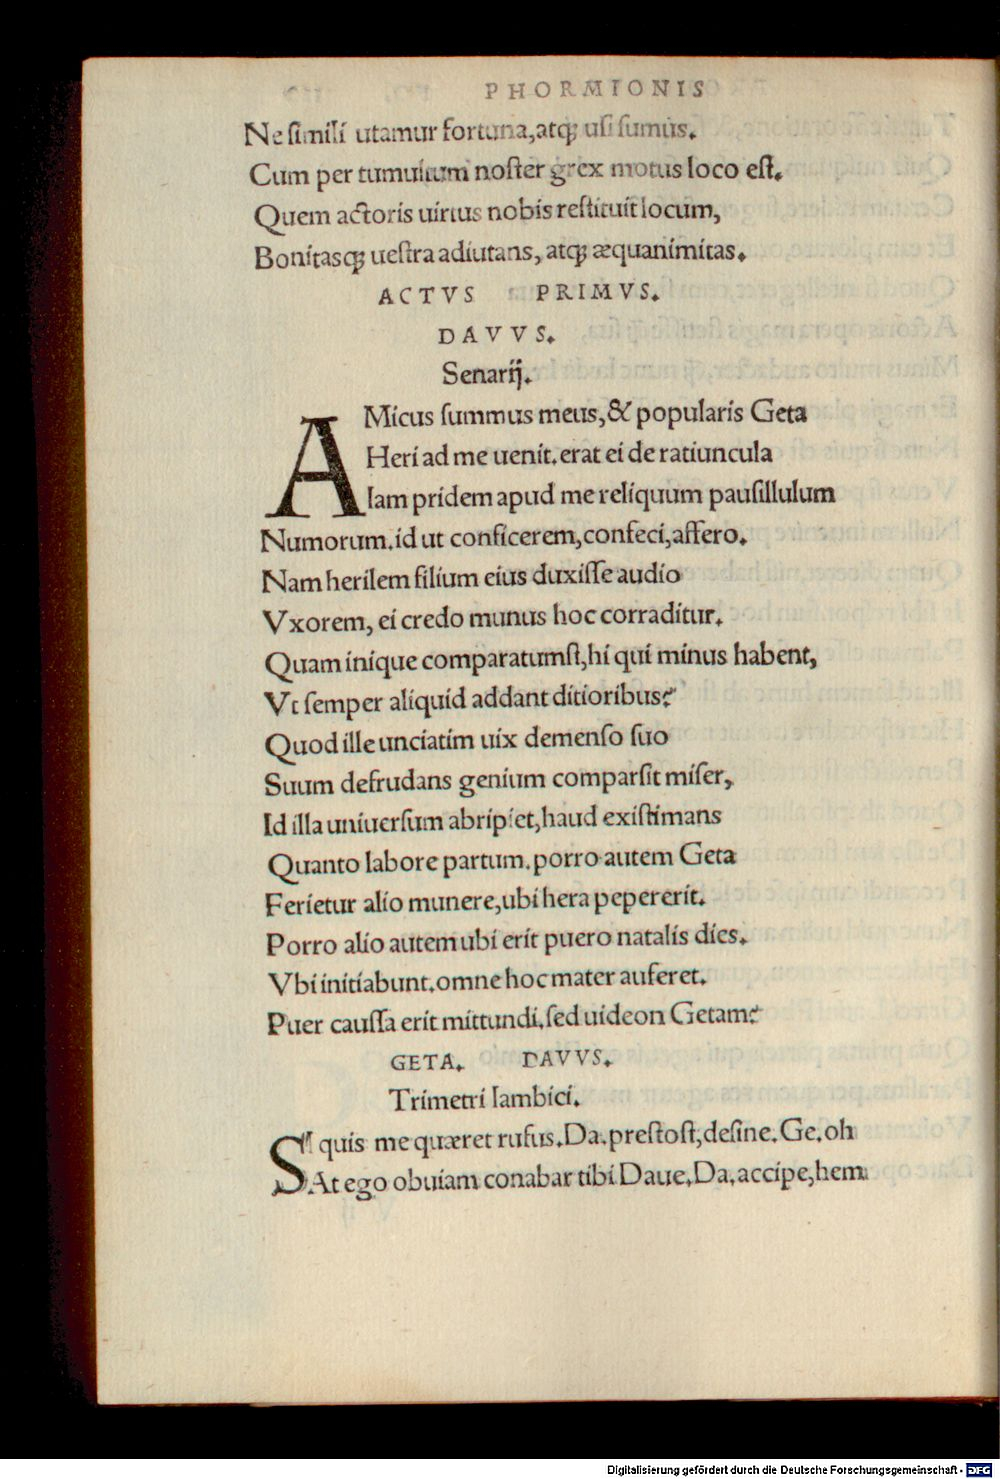 PHORMIONIS
Ne simili utamur fortuna, atq; usi sumus.
Cum per tumultum noster grex motus loco est.
Quem actoris uirtus nobis restituit locum,
Bonitasq; uestra adiutans, atq; æquanimitas.
ACTVS PRIMVS.
DAVVS.
Senarij.
AMicus summus meus, & popularis Geta
Heri ad me uenit. erat ei de ratiuncula
Iam pridem apud me reliquum pausillulum
Numorum. id ut conficerem, confeci, affero.
Nam herilem filium eius duxisse audio
Vxorem, ei credo munus hoc corraditur.
Quam inique comparatumst, hi qui minus habent,
Vt semper aliquid addant ditioribus?
Quod ille unciatim uix demenso suo
Suum defrudans genium comparsit miser,
Id illa uniuersum abripiet, haud existimans
Quanto labore partum. porro autem Geta
Ferietur alio munere, ubi hera pepererit.
Porro alio autem ubi erit puero natalis dies.
Vbi initiabunt. omne hoc mater auferet.
Puer caussa erit mittundi. sed uideon Getam?
GETA. DAVVS.
Trimetri Iambici.
SI quis me quæret rufus. Da. prestost, desine. Ge. oh
At ego obuiam conabar tibi Daue. Da. accipe, hem
Digitalisierung gefördert durch die Deutsche Forschungsgemeinschaft - DFG